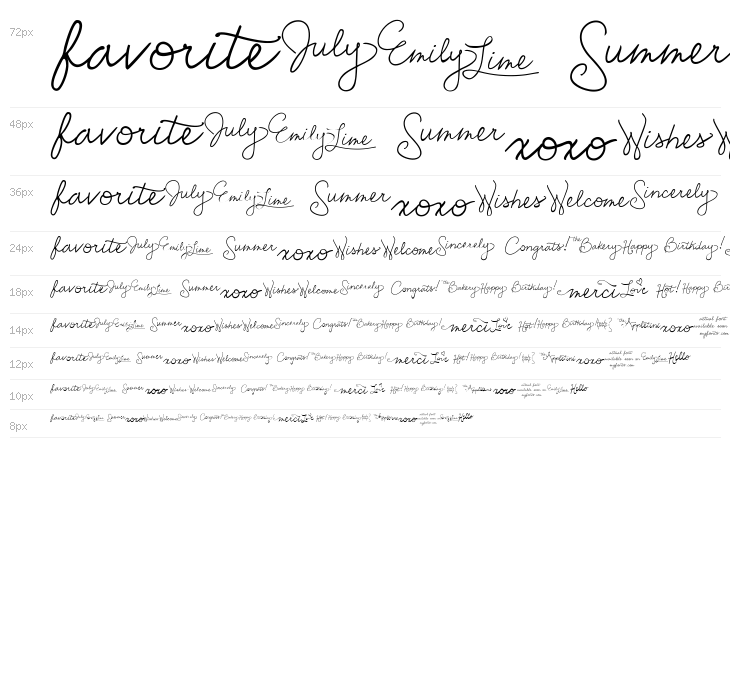 72px favorite July Emily Lime Summer
48px favorite July Emily Lime Summer xoxo Wishes W
36px favorite July Emily Lime Summer xoxo Wishes Welcome Sincerely
24px favorite July Emily Lime Summer xoxo Wishes Welcome Sincerely Congrats! the Bakery Happy Birthday!
18px favorite July Emily Lime Summer xoxo Wishes Welcome Sincerely Congrats! the Bakery Happy Birthday! merci Love Hot! Happy Bi
14px favorite July Emily Lime Summer xoxo Wishes Welcome Sincerely Congrats! the Bakery Happy Birthday! merci Love Hot! Happy Birthday xoxo
12px favorite July Emily Lime Summer xoxo Wishes Welcome Sincerely Congrats! the Bakery Happy Birthday! merci Love Hot! Happy Birthday xoxo Emily Lime Hello
10px favorite July Emily Lime Summer xoxo Wishes Welcome Sincerely Congrats! the Bakery Happy Birthday! merci Love Hot! Happy Birthday xoxo Hello
8px favorite July Emily Lime Summer xoxo Wishes Welcome Sincerely Congrats! the Bakery Happy Birthday! merci Love Hello